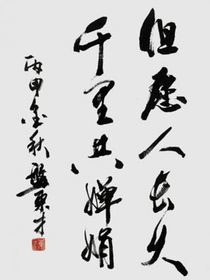 但愿人长久
千里共婵娟
丙申金秋